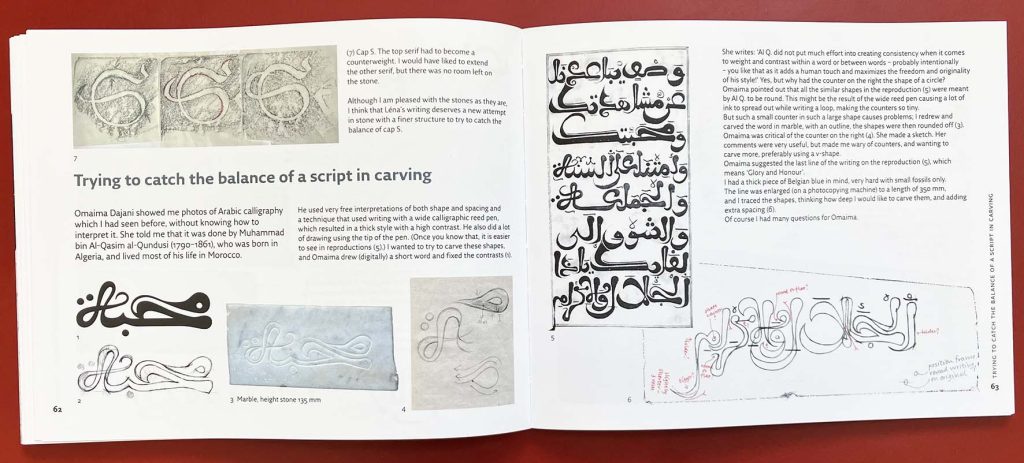 7
(7) Cap S. The top serif had to become a
counterweight. I would have liked to extend
the other serif, but there was no room left on
the stone.
Although I am pleased with the stones as they are,
I think that Léna's writing deserves a new attempt
in stone with a finer structure to try to catch the
balance of cap S.
Trying to catch the balance of a script in carving
Omaima Dajani showed me photos of Arabic calligraphy
which I had seen before, without knowing how to
interpret it. She told me that it was done by Muhammad
bin Al-Qasim al-Qundusi (1790–1861), who was born in
Algeria, and lived most of his life in Morocco.
He used very free interpretations of both shape and spacing and
a technique that used writing with a wide calligraphic reed pen,
which resulted in a thick style with a high contrast. He also did a lot
of drawing using the tip of the pen. (Once you know that, it is easier
to see in reproductions (5).) I wanted to try to carve these shapes,
and Omaima drew (digitally) a short word and fixed the contrasts (1).
محبة
1
2
3 Marble, height stone 135 mm
4
62
عن مشاهدتك
والشوق الى
لقائك ياذا
الجلال والاكرام
5
She writes: 'Al Q. did not put much effort into creating consistency when it comes
to weight and contrast within a word or between words – probably intentionally
– you like that as it adds a human touch and maximizes the freedom and originality
of his style!' Yes, but why had the counter on the right the shape of a circle?
Omaima pointed out that all the similar shapes in the reproduction (5) were meant
by Al Q. to be round. This might be the result of the wide reed pen causing a lot of
ink to spread out while writing a loop, making the counters so tiny.
But such a small counter in such a large shape causes problems; I redrew and
carved the word in marble, with an outline, the shapes were then rounded off (3).
Omaima was critical of the counter on the right (4). She made a sketch. Her
comments were very useful, but made me wary of counters, and wanting to
carve more, preferably using a v-shape.
Omaima suggested the last line of the writing on the reproduction (5), which
means 'Glory and Honour'.
I had a thick piece of Belgian blue in mind, very hard with small fossils only.
The line was enlarged (on a photocopying machine) to a length of 350 mm,
and I traced the shapes, thinking how deep I would like to carve them, and adding
extra spacing (6).
Of course I had many questions for Omaima.
position frame
round writing
on original
6
TRYING TO CATCH THE BALANCE OF A SCRIPT IN CARVING
63